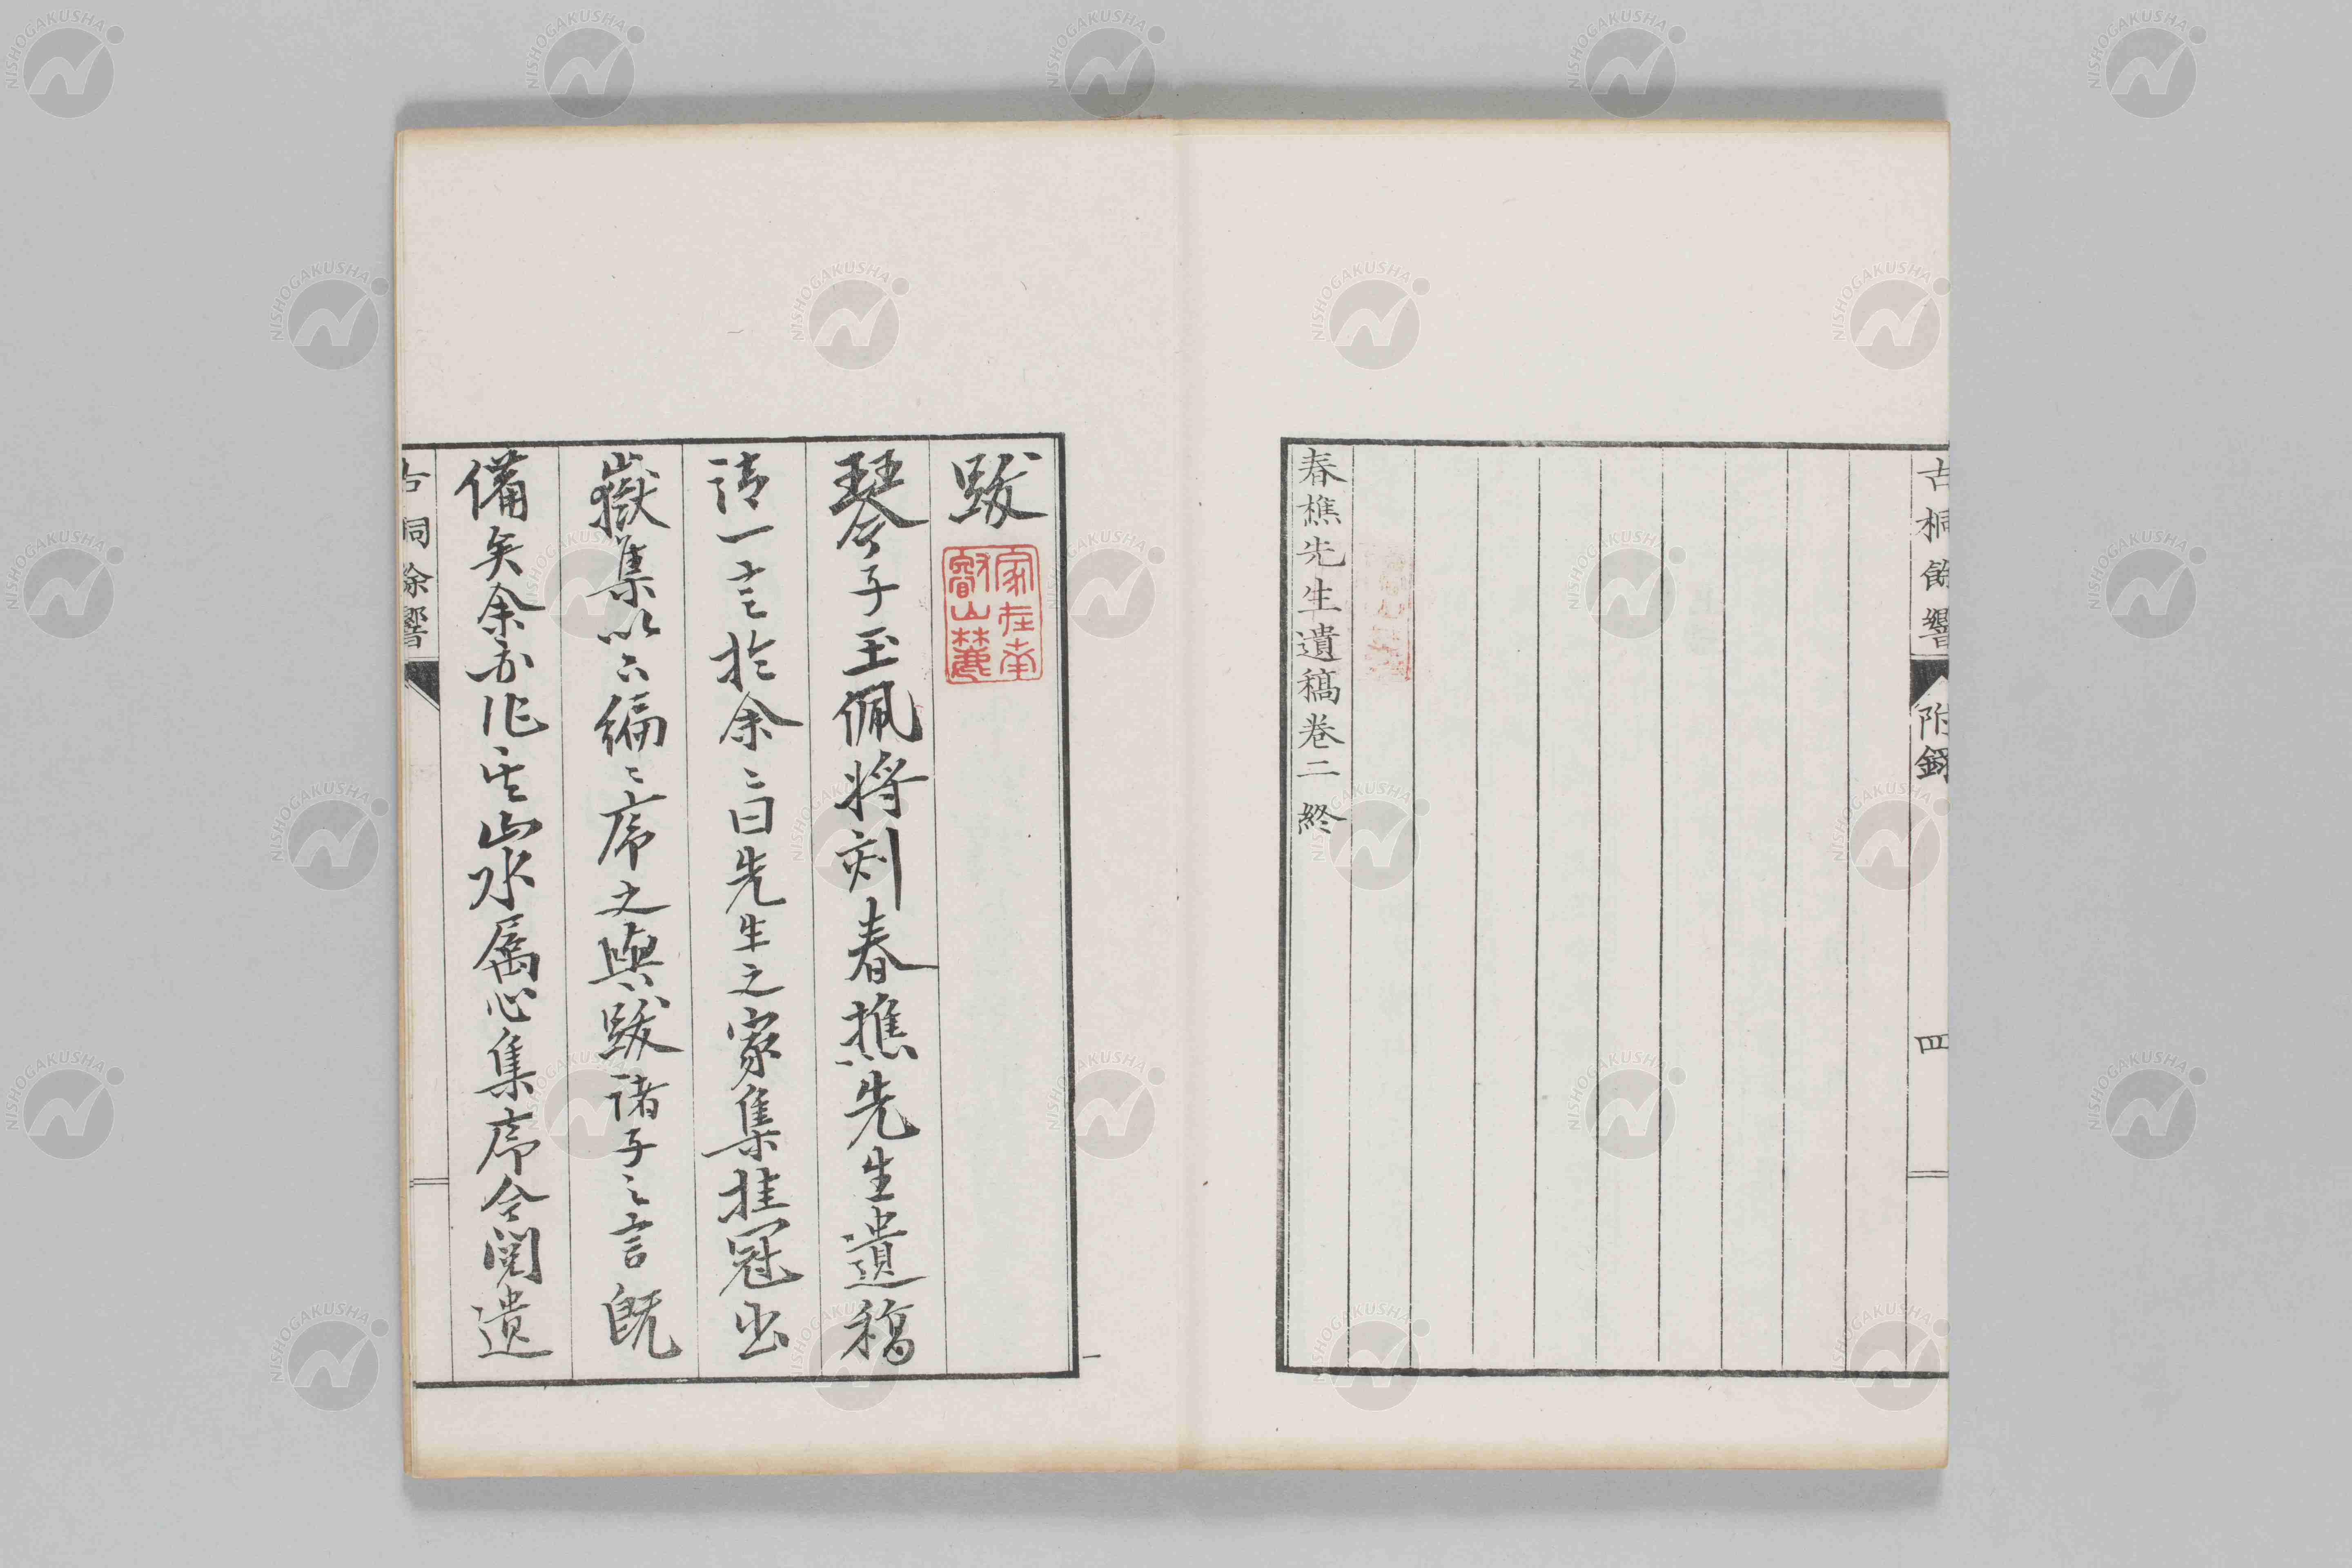 古桐餘響 附錄 四
春樵先生遺稿卷二 終
跋
家在南
叡山麓
琴子玉佩將刻春樵先生遺稿
請一言於余〻曰先生之家集挂冠出
嶽集以六編〻序之與跋諸子之言既
備矣余亦作其山水属心集序今閱遺
古桐餘響
NISHOGAKUSHA